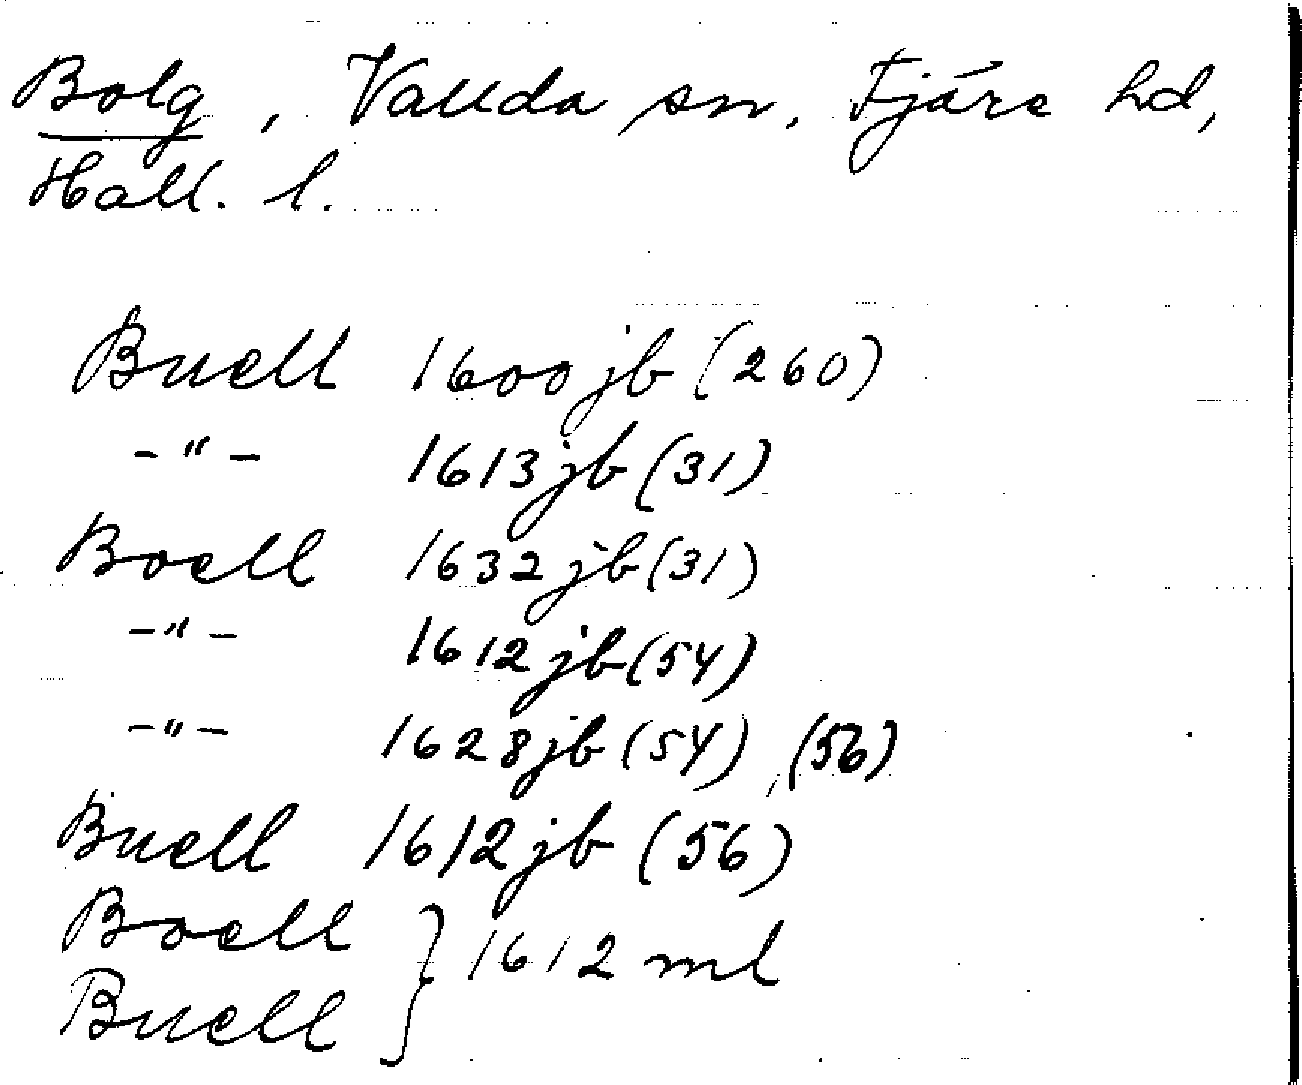 Bolg, Vallda sn, Fjäre hd,
Hall. l.
Buell 1600 jb (260)
-"- 1613 jb (31)
Boell 1632 jb (31)
-"- 1612 jb (54)
-"- 1628 jb (54), (56)
Buell 1612 jb (56)
Boell
Buell } 1612 ml